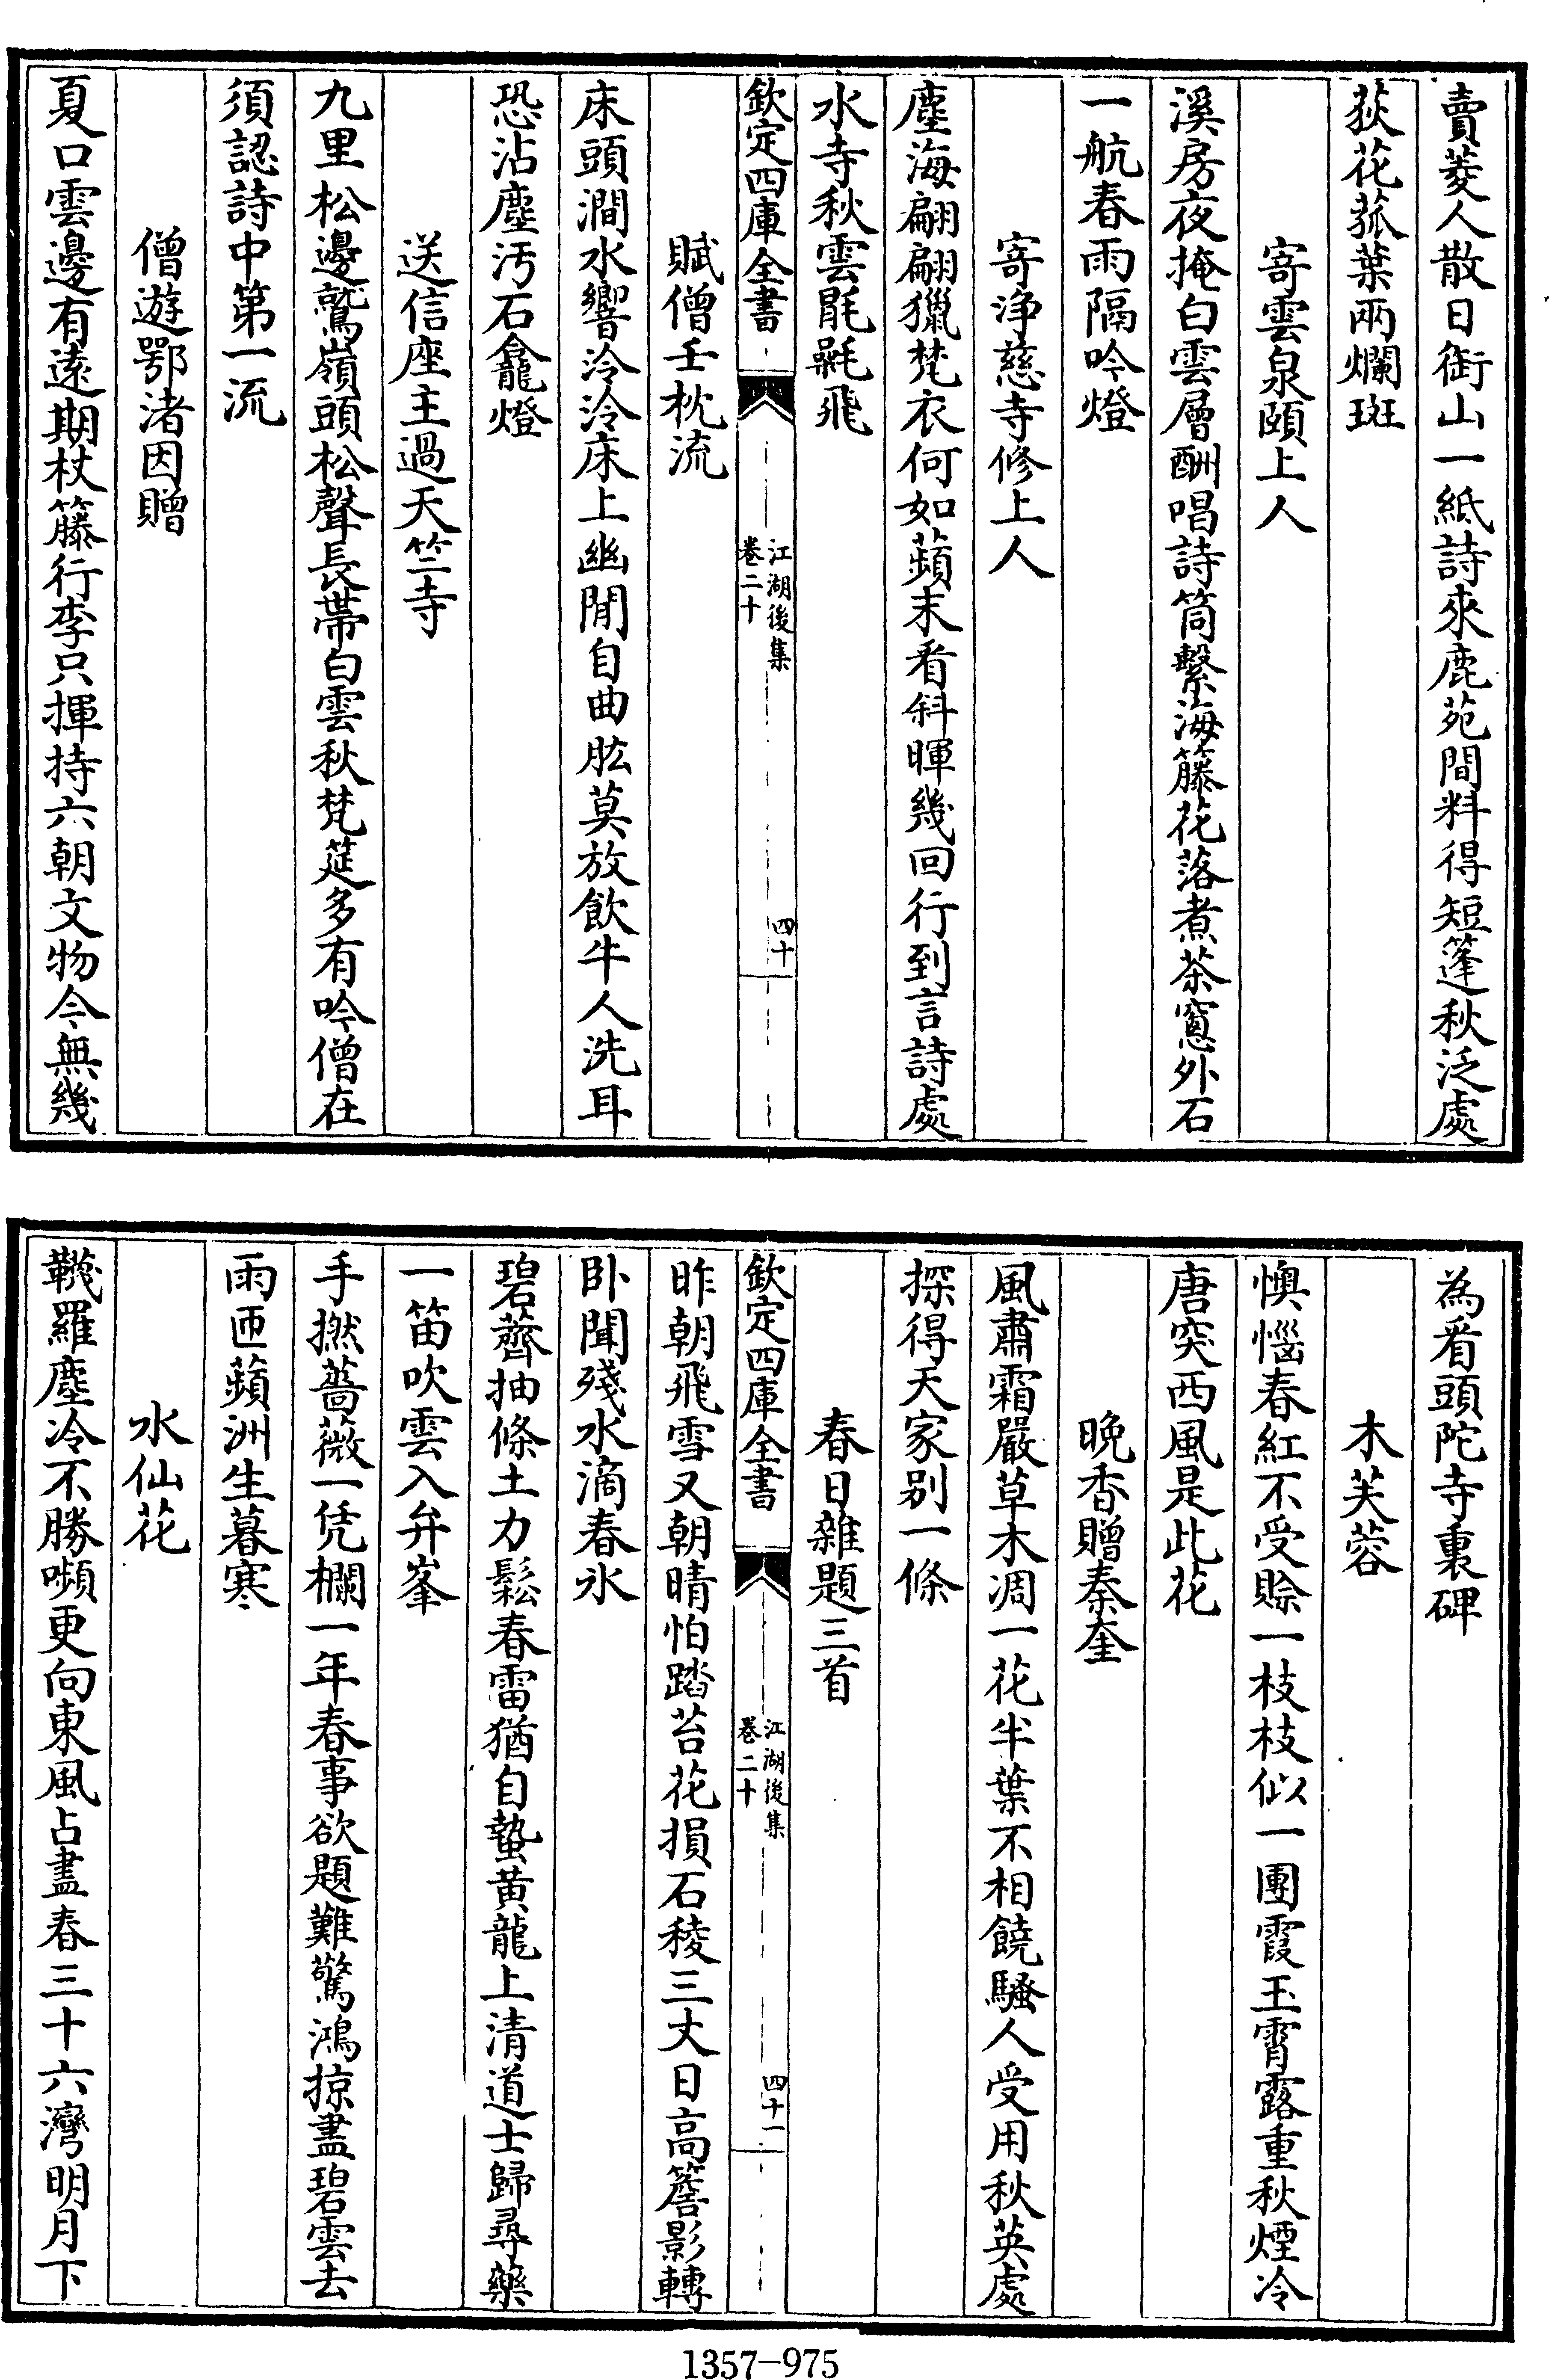 賣菱人散日銜山一紙詩來鹿苑間料得短篷秋泛處
荻花菰葉兩爛斑
寄雲泉頤上人
溪房夜掩白雲層酬唱詩筒繫海籐花落煮茶窻外石
一航春雨隔吟燈
寄浄慈寺修上人
塵海翩翩獵梵衣何如蘋末看斜暉幾回行到言詩處
水寺秋雲毾㲪飛
欽定四庫全書
江湖後集
卷二十
四十
賦僧壬枕流
床頭澗水響泠泠床上幽閒自曲肱莫放飲牛人洗耳
恐沾塵汚石龕燈
送信座主過天竺寺
九里松邊鷲嶺頭松聲長帶白雲秋梵筵多有吟僧在
須認詩中第一流
僧遊鄂渚因贈
夏口雲邊有遠期杖籐行李只揮持六朝文物今無幾
為看頭陀寺裏碑
木芙蓉
懊惱春紅不受賒一枝枝似一團霞玉霄露重秋煙冷
唐突西風是此花
晚香贈秦奎
風肅霜嚴草木凋一花半葉不相饒騷人受用秋英處
探得天家别一條
春日雜題三首
欽定四庫全書
江湖後集
卷二十
四十一
昨朝飛雪又朝晴怕踏苔花損石稜三丈日高簷影轉
卧聞殘水滴春氷
碧虀抽條土力鬆春雷猶自蟄黄龍上清道士歸尋藥
一笛吹雲入弁峯
手撚薔薇一凭欄一年春事欲題難驚鴻掠盡碧雲去
雨匝蘋洲生暮寒
水仙花
韈羅塵冷不勝嚬更向東風占盡春三十六灣明月下
1357-975